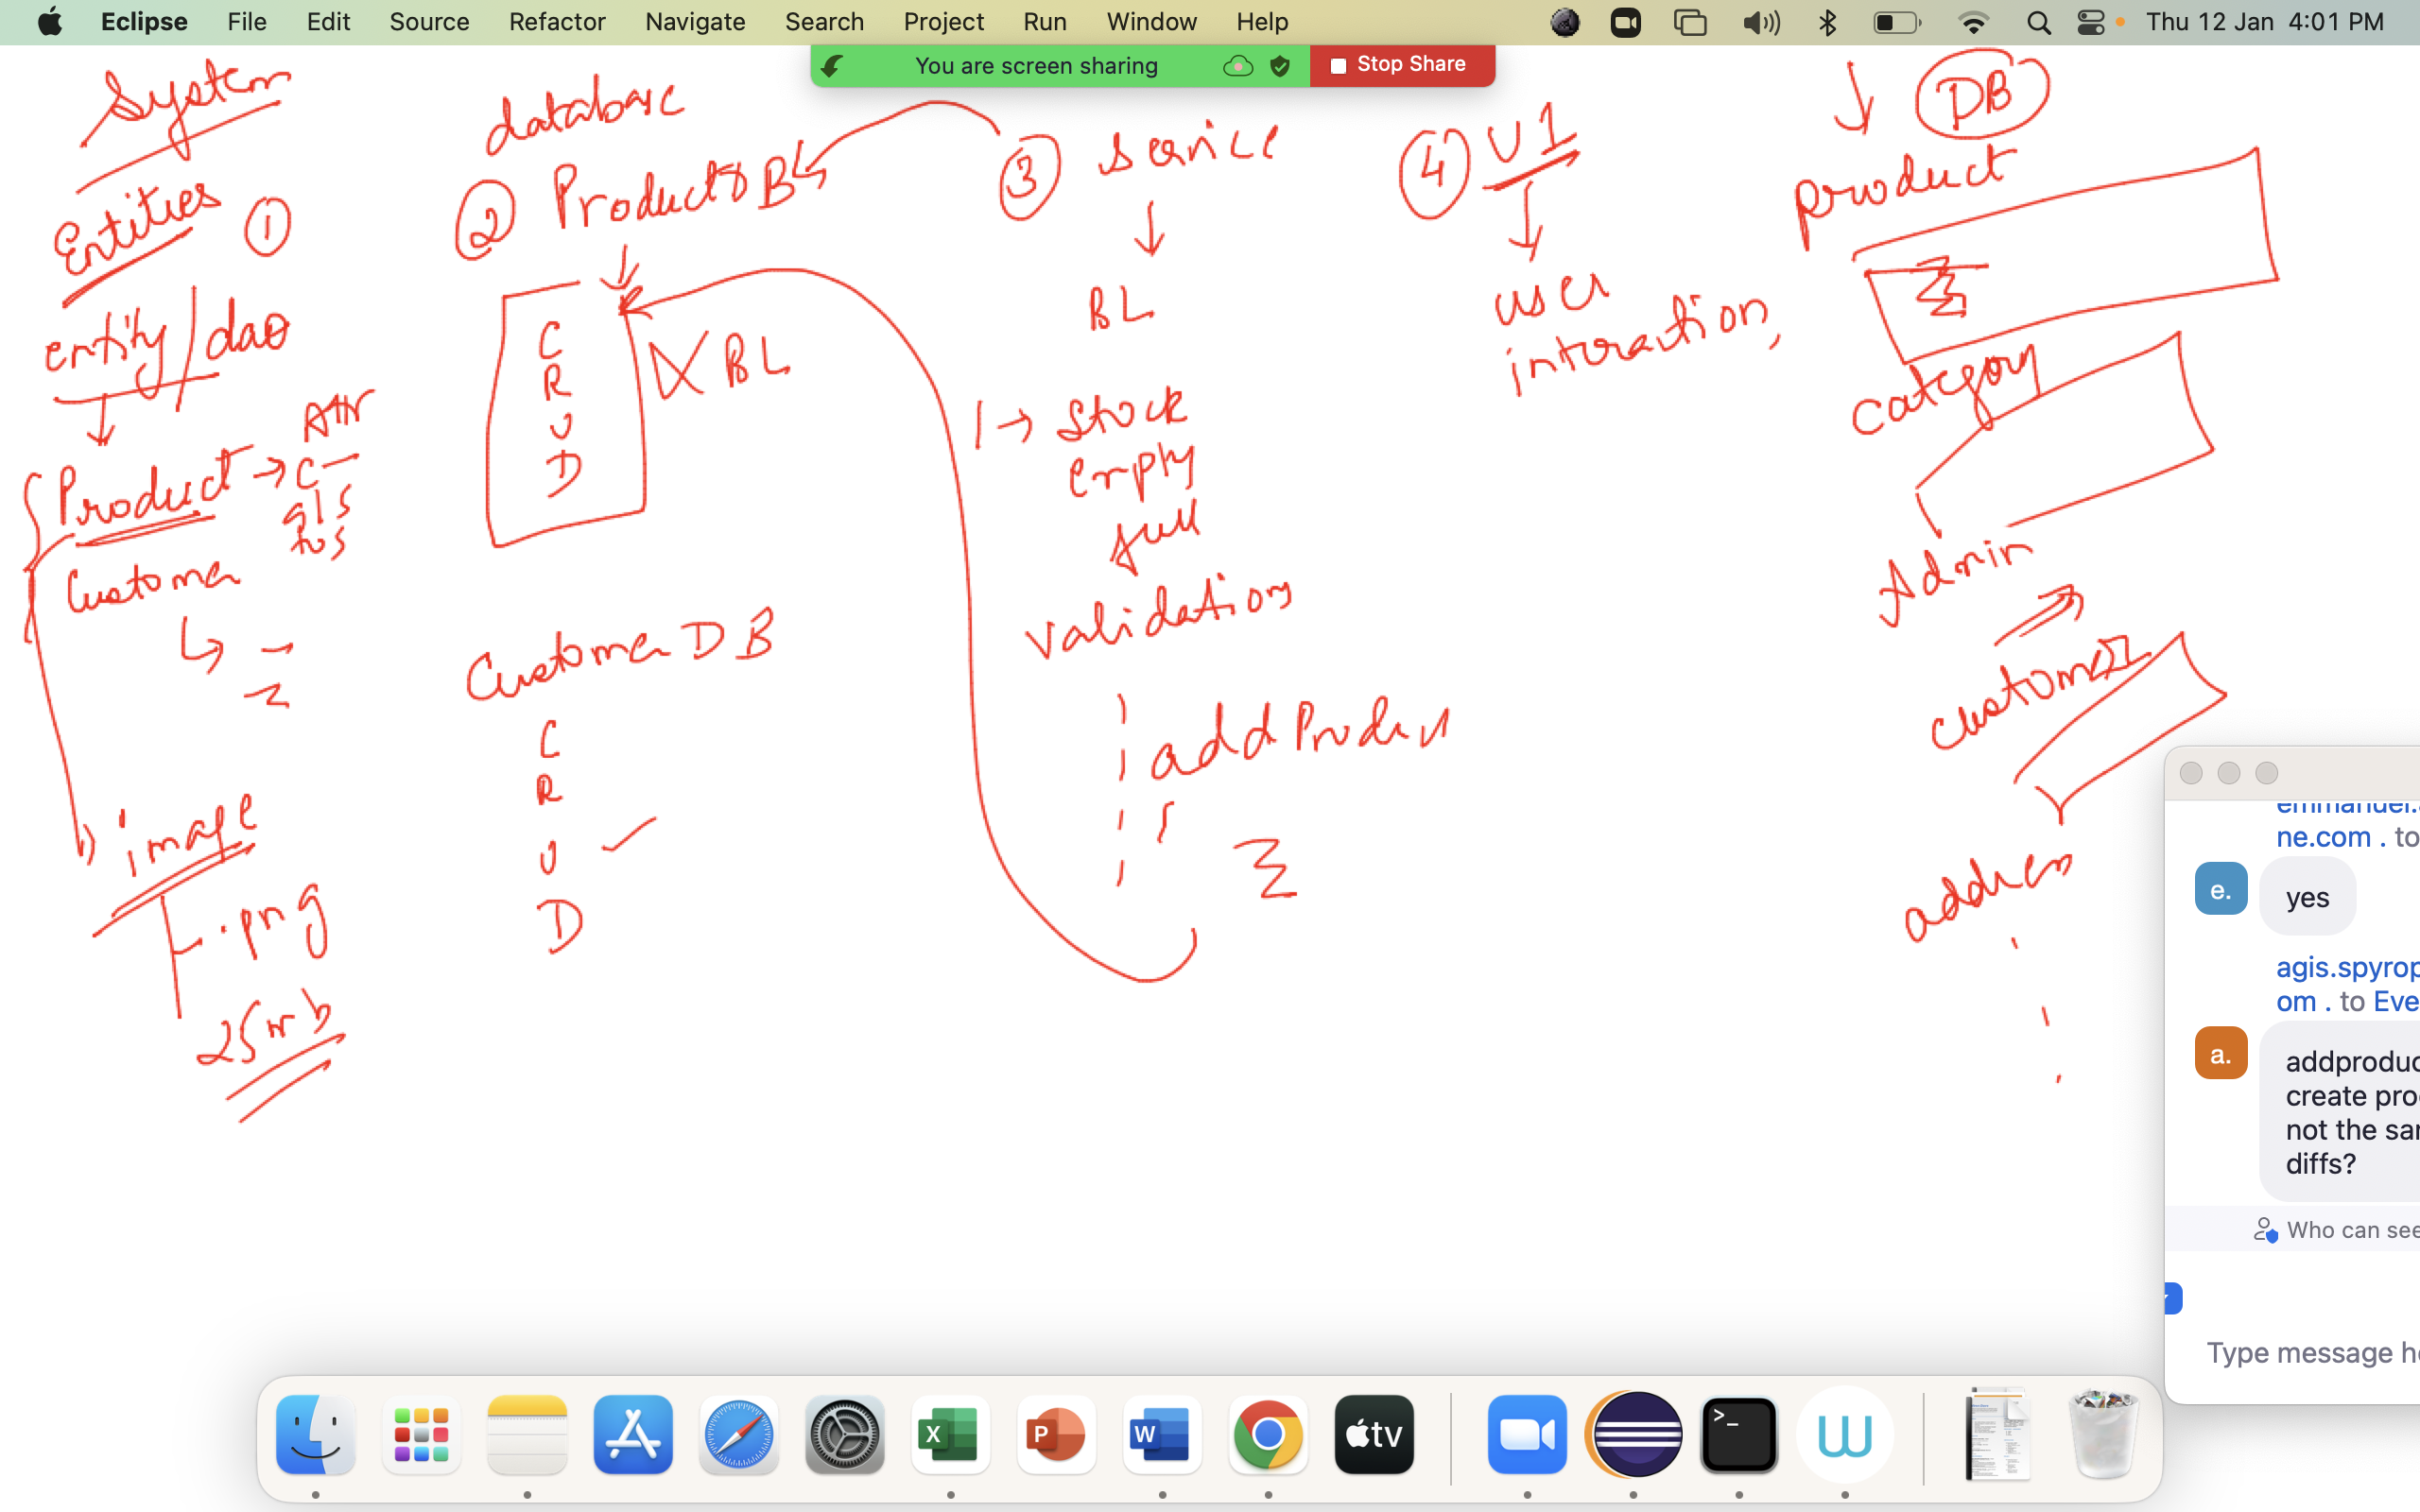 Eclipse File Edit Source Refactor Navigate Search Project Run Window Help Thu 12 Jan 4:01 PM
You are screen sharing Stop Share
System
Entities ①
entity/dao
Product → C
Attr
g/s
tos
Customer
image
.png
25mb
database
② ProductDB
C
R
U
D
BL
Customer DB
C
R
U
D
③ Service
BL
1 → Stock
empty
full
validations
addProduct
④ UI
user
interaction,
DB
product
category
Admin
customer
address
emmanuel.
ne.com . to
e.
yes
agis.spyrop
om . to Eve
a.
addproduc
create pro
not the sa
diffs?
Who can see
Type message he
X
P
W
tv
>_
W